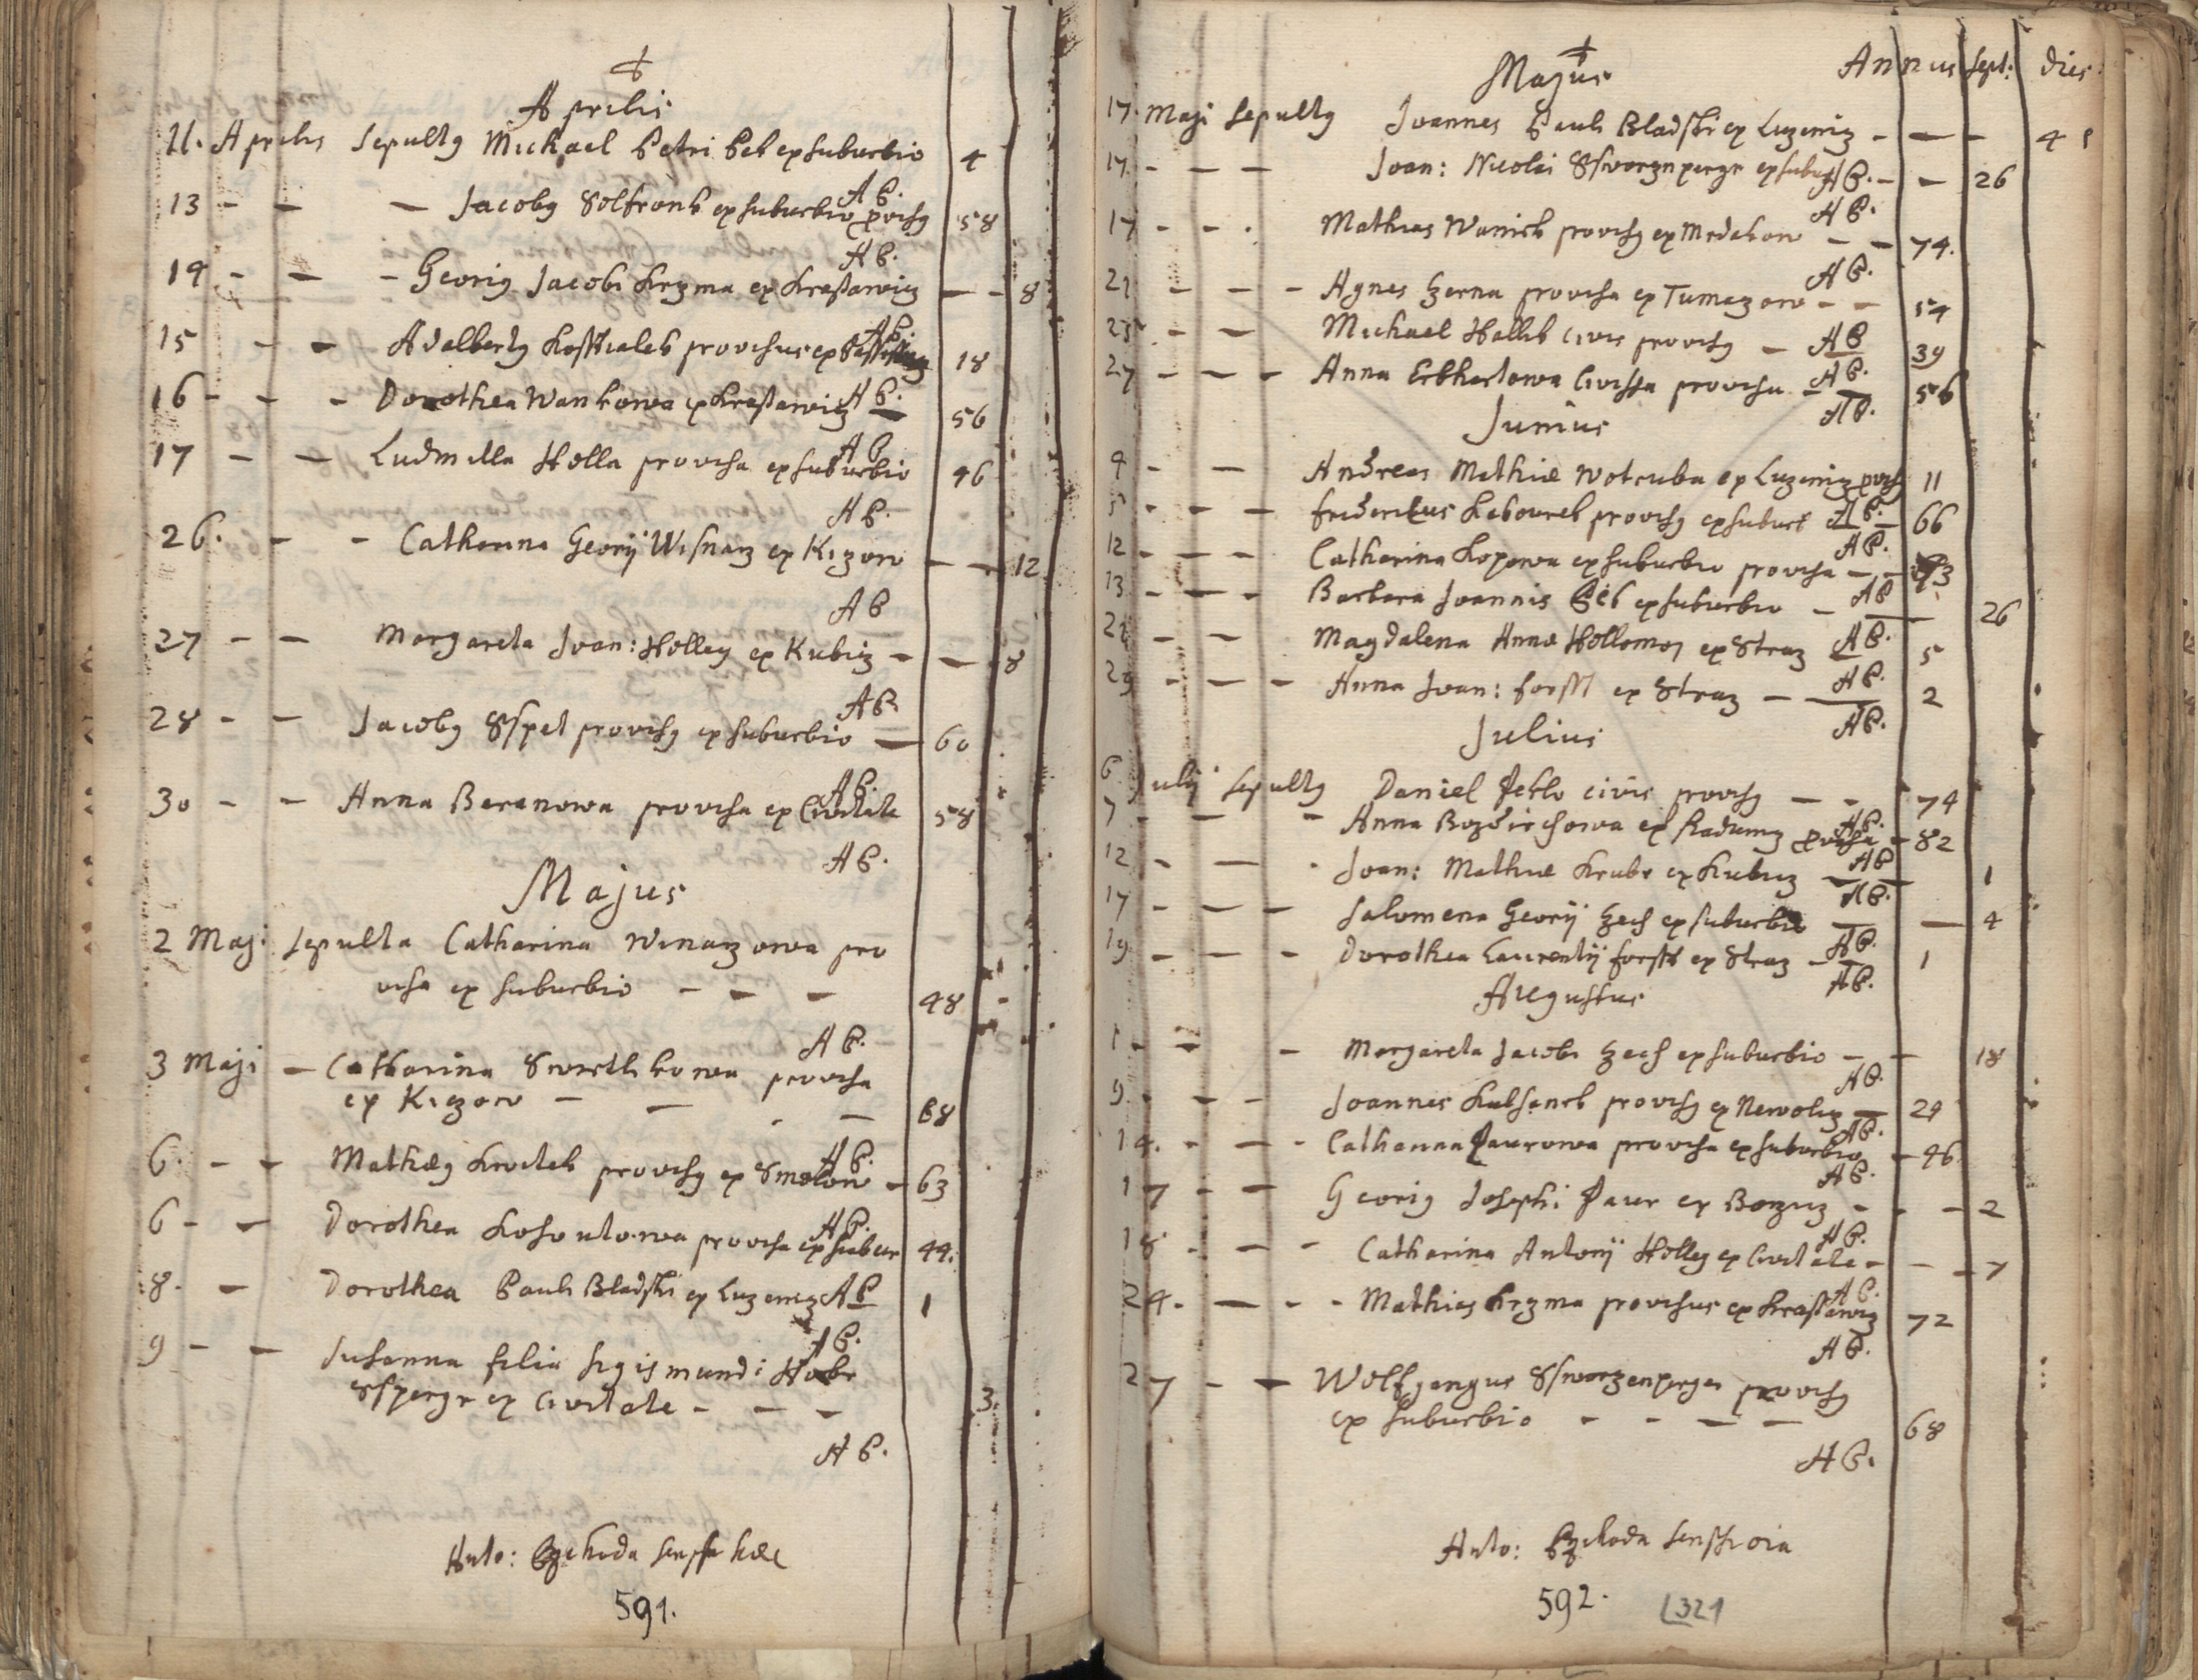 Aprilis
11. Aprilis Sepultg Michael Petri Peb ex suburbio 4
AP.
13 - - - Jacobg Solfronk ex suburbio provisg 58
AP.
14 - - - Georig Jacobi Krzma ex Krastawicz - - 8
AP.
15 - - Adalbertg Kosstialek provisus ex 18
AP.
16 - - - Dorothea Wankowa ex Krastawicz - 56
AP
17 - - Ludmilla Holla provisa ex suburbio 46
AP.
26. - - Catharina Georij Wisnarz ex Kizow - - 12
AP
27 - - Margareta Joan: Holley ex Kubicz - - 8
AP.
28 - - Jacobg Sspet provisg ex suburbio - 60
AP.
30 - - Anna Beranowa provisa ex Civitate 58
AP.
Majus
2 Maj. Sepulta Catharina Winarzowa pro
visa ex suburbio - - - 48
AP.
3 Maji - Catharina Swietlikowa provisa
ex Kiczow - - - - 68
AP.
6. - - Mathæg Krotek provisg ex Smolow - 63
AP.
6 - - Dorothea Kohoutowa provisa ex subur 44.
8. - Dorothea Pauli Bladski ex Luzenicz AP 1
AP.
9 - - Susanna filia Sigismundi Habr
Sspergr ex Civitate - - - 3.
AP.
Anto: hæc
591.
Majus Annus Sept: dies
17. Maji Sepultg Joannes Pauli Bladski ex Luzenicz - - - 4
AP.
17. - - - Joan: Nicolai Sswarznpergr ex subur - - 26
AP.
17 - - . Mathias Wanick provisg ex Medakow - - 74.
AP.
21 - - - Agnes Zerna provisa ex Tumazow - - 54
23 - - Michael Hallk Civis provisg - AP 39
27 - - - Anna Erkhartowa Civissa provisa - AP. 56
AP.
Junius
4 - - Andreas Mathiæ Wotruba ex Luzenicz provisg 11
5 - - - Fridericus Kebourek provisg ex suburb AP. - 66
AP.
12 - - - Catharina Kopowa ex suburbio provisa - - 73
13 - - - Barbara Joannis Peb ex suburbio - AP - 26
21 - - Magdalena Annæ Hollomoj ex Straz AP. 5
AP.
29 - - - Anna Joan: Forsst ex Straz - - 2
AP.
Julius
6. Julij Sepultg Daniel Peklo civis provisg - - 74
AP.
7 - - - Anna Bozdiechowa ex Radonicz provisa - 82
AP
12 - - . Joan: Mathiæ Krabr ex Kubicz - - 1
AP.
17 - - - Salomena Georij Zech ex suburbio - - 4
AP.
19. - - - Dorothea Laurentij Forsst ex Straz - - 1
AP.
Augustus
1 - - - Margareta Jacobi Zech ex suburbio - - 18
AP.
9. - - - Joannes Kubsanek provisg ex Newolicz - 24
AP.
14. - - - Catharina Paurowa provisa ex suburbio - 46
AP.
17 - - Georig Josephi Paur ex Borzicz - - - 2
AP.
18 - - - Catharina Antonij Holley ex Civitate - - - 7
AP.
24. - - - Mathias Krzma provisus ex Krastawicz 72
AP.
27 - - Wolfgangus Sswarzenperger provisg
ex suburbio - - - - 68
AP.
Anto:
592. 321